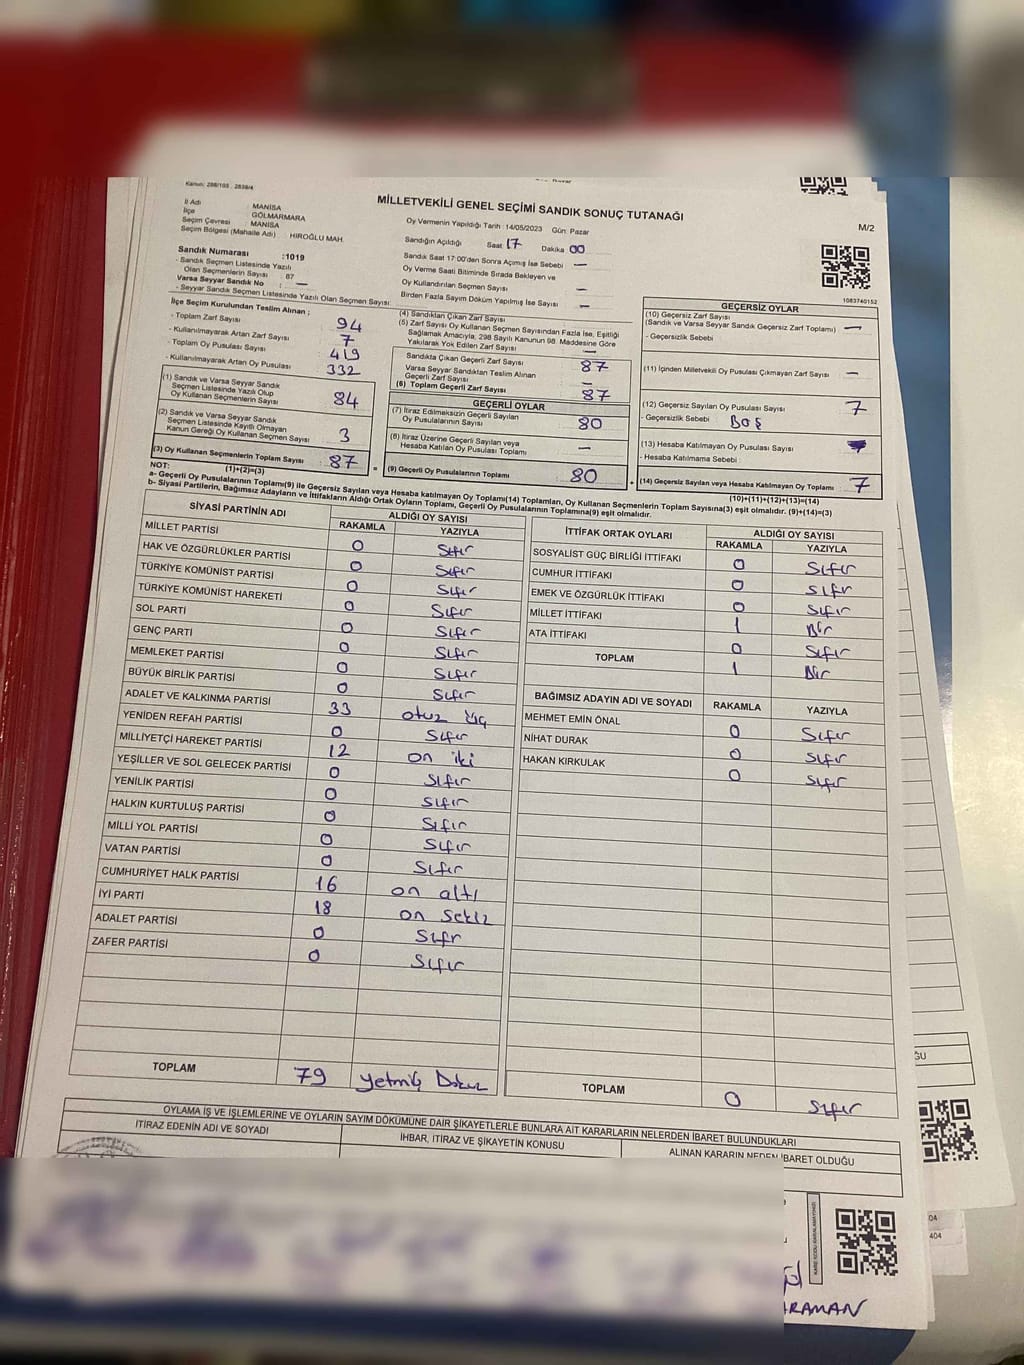 Kanun: 298/105 . 2839/4
MİLLETVEKİLİ GENEL SEÇİMİ SANDIK SONUÇ TUTANAĞI
M/2
İl Adı : MANİSA
İlçe : GÖLMARMARA
Seçim Çevresi : MANİSA
Seçim Bölgesi (Mahalle Adı) : HIROĞLU MAH.
Oy Vermenin Yapıldığı Tarih :14/05/2023 Gün: Pazar
Sandığın Açıldığı Saat 17 Dakika 00
Sandık Saat 17:00'den Sonra Açımış İse Sebebi —
Oy Verme Saati Bitiminde Sırada Bekleyen ve
Oy Kullandırılan Seçmen Sayısı —
Birden Fazla Sayım Döküm Yapılmış İse Sayısı —
1083740152
Sandık Numarası :1019
- Sandık Seçmen Listesinde Yazılı
Olan Seçmenlerin Sayısı : 87
Varsa Seyyar Sandık No : —
- Seyyar Sandık Seçmen Listesinde Yazılı Olan Seçmen Sayısı:
İlçe Seçim Kurulundan Teslim Alınan ;
- Toplam Zarf Sayısı 94
- Kullanılmayarak Artan Zarf Sayısı 7
- Toplam Oy Pusulası Sayısı 419
- Kullanılmayarak Artan Oy Pusulası 332
(1) Sandık ve Varsa Seyyar Sandık
Seçmen Listesinde Yazılı Olup
Oy Kullanan Seçmenlerin Sayısı 84
(2) Sandık ve Varsa Seyyar Sandık
Seçmen Listesinde Kayıtlı Olmayan
Kanun Gereği Oy Kullanan Seçmen Sayısı 3
(3) Oy Kullanan Seçmenlerin Toplam Sayısı 87
(1)+(2)=(3)
(4) Sandıktan Çıkan Zarf Sayısı
(5) Zarf Sayısı Oy Kullanan Seçmen Sayısından Fazla İse, Eşitliği
Sağlamak Amacıyla, 298 Sayılı Kanunun 98. Maddesine Göre
Yakılarak Yok Edilen Zarf Sayısı —
Sandıkta Çıkan Geçerli Zarf Sayısı 87
Varsa Seyyar Sandıktan Teslim Alınan
Geçerli Zarf Sayısı —
(6) Toplam Geçerli Zarf Sayısı 87
GEÇERLİ OYLAR
(7) İtiraz Edilmeksizin Geçerli Sayılan
Oy Pusulalarının Sayısı 80
(8) İtiraz Üzerine Geçerli Sayılan veya
Hesaba Katılan Oy Pusulası Toplamı —
= (9) Geçerli Oy Pusulalarının Toplamı 80
GEÇERSİZ OYLAR
(10) Geçersiz Zarf Sayısı
(Sandık ve Varsa Seyyar Sandık Geçersiz Zarf Toplamı) —
- Geçersizlik Sebebi
(11) İçinden Milletvekili Oy Pusulası Çıkmayan Zarf Sayısı —
(12) Geçersiz Sayılan Oy Pusulası Sayısı 7
- Geçersizlik Sebebi BOŞ
(13) Hesaba Katılmayan Oy Pusulası Sayısı
- Hesaba Katılmama Sebebi :
+ (14) Geçersiz Sayılan veya Hesaba Katılmayan Oy Toplamı 7
(10)+(11)+(12)+(13)=(14)
NOT:
a- Geçerli Oy Pusulalarının Toplamı(9) ile Geçersiz Sayılan veya Hesaba katılmayan Oy Toplamı(14) Toplamları, Oy Kullanan Seçmenlerin Toplam Sayısına(3) eşit olmalıdır. (9)+(14)=(3)
b- Siyasi Partilerin, Bağımsız Adayların ve İttifakların Aldığı Ortak Oyların Toplamı, Geçerli Oy Pusulalarının Toplamına(9) eşit olmalıdır.
SİYASİ PARTİNİN ADI ALDIĞI OY SAYISI
RAKAMLA YAZIYLA
MİLLET PARTİSİ 0 Sıfır
HAK VE ÖZGÜRLÜKLER PARTİSİ 0 Sıfır
TÜRKİYE KOMÜNİST PARTİSİ 0 Sıfır
TÜRKİYE KOMÜNİST HAREKETİ 0 Sıfır
SOL PARTİ 0 Sıfır
GENÇ PARTİ 0 Sıfır
MEMLEKET PARTİSİ 0 Sıfır
BÜYÜK BİRLİK PARTİSİ 0 Sıfır
ADALET VE KALKINMA PARTİSİ 33 otuz üç
YENİDEN REFAH PARTİSİ 0 Sıfır
MİLLİYETÇİ HAREKET PARTİSİ 12 on iki
YEŞİLLER VE SOL GELECEK PARTİSİ 0 Sıfır
YENİLİK PARTİSİ 0 Sıfır
HALKIN KURTULUŞ PARTİSİ 0 Sıfır
MİLLİ YOL PARTİSİ 0 Sıfır
VATAN PARTİSİ 0 Sıfır
CUMHURİYET HALK PARTİSİ 16 on altı
İYİ PARTİ 18 on sekiz
ADALET PARTİSİ 0 Sıfr
ZAFER PARTİSİ 0 Sıfır
TOPLAM 79 yetmiş Dokuz
İTTİFAK ORTAK OYLARI ALDIĞI OY SAYISI
RAKAMLA YAZIYLA
SOSYALİST GÜÇ BİRLİĞİ İTTİFAKI 0 Sıfır
CUMHUR İTTİFAKI 0 Sıfr
EMEK VE ÖZGÜRLÜK İTTİFAKI 0 Sıfır
MİLLET İTTİFAKI 1 Bir
ATA İTTİFAKI 0 Sıfır
TOPLAM 1 Bir
BAĞIMSIZ ADAYIN ADI VE SOYADI RAKAMLA YAZIYLA
MEHMET EMİN ÖNAL 0 Sıfır
NİHAT DURAK 0 Sıfır
HAKAN KIRKULAK 0 Sıfır
TOPLAM 0 Sıfır
OYLAMA İŞ VE İŞLEMLERİNE VE OYLARIN SAYIM DÖKÜMÜNE DAİR ŞİKAYETLERLE BUNLARA AİT KARARLARIN NELERDEN İBARET BULUNDUKLARI
İTİRAZ EDENİN ADI VE SOYADI
İHBAR, İTİRAZ VE ŞİKAYETİN KONUSU
ALINAN KARARIN NEDEN İBARET OLDUĞU
ĞU
04
404
ARAMAN